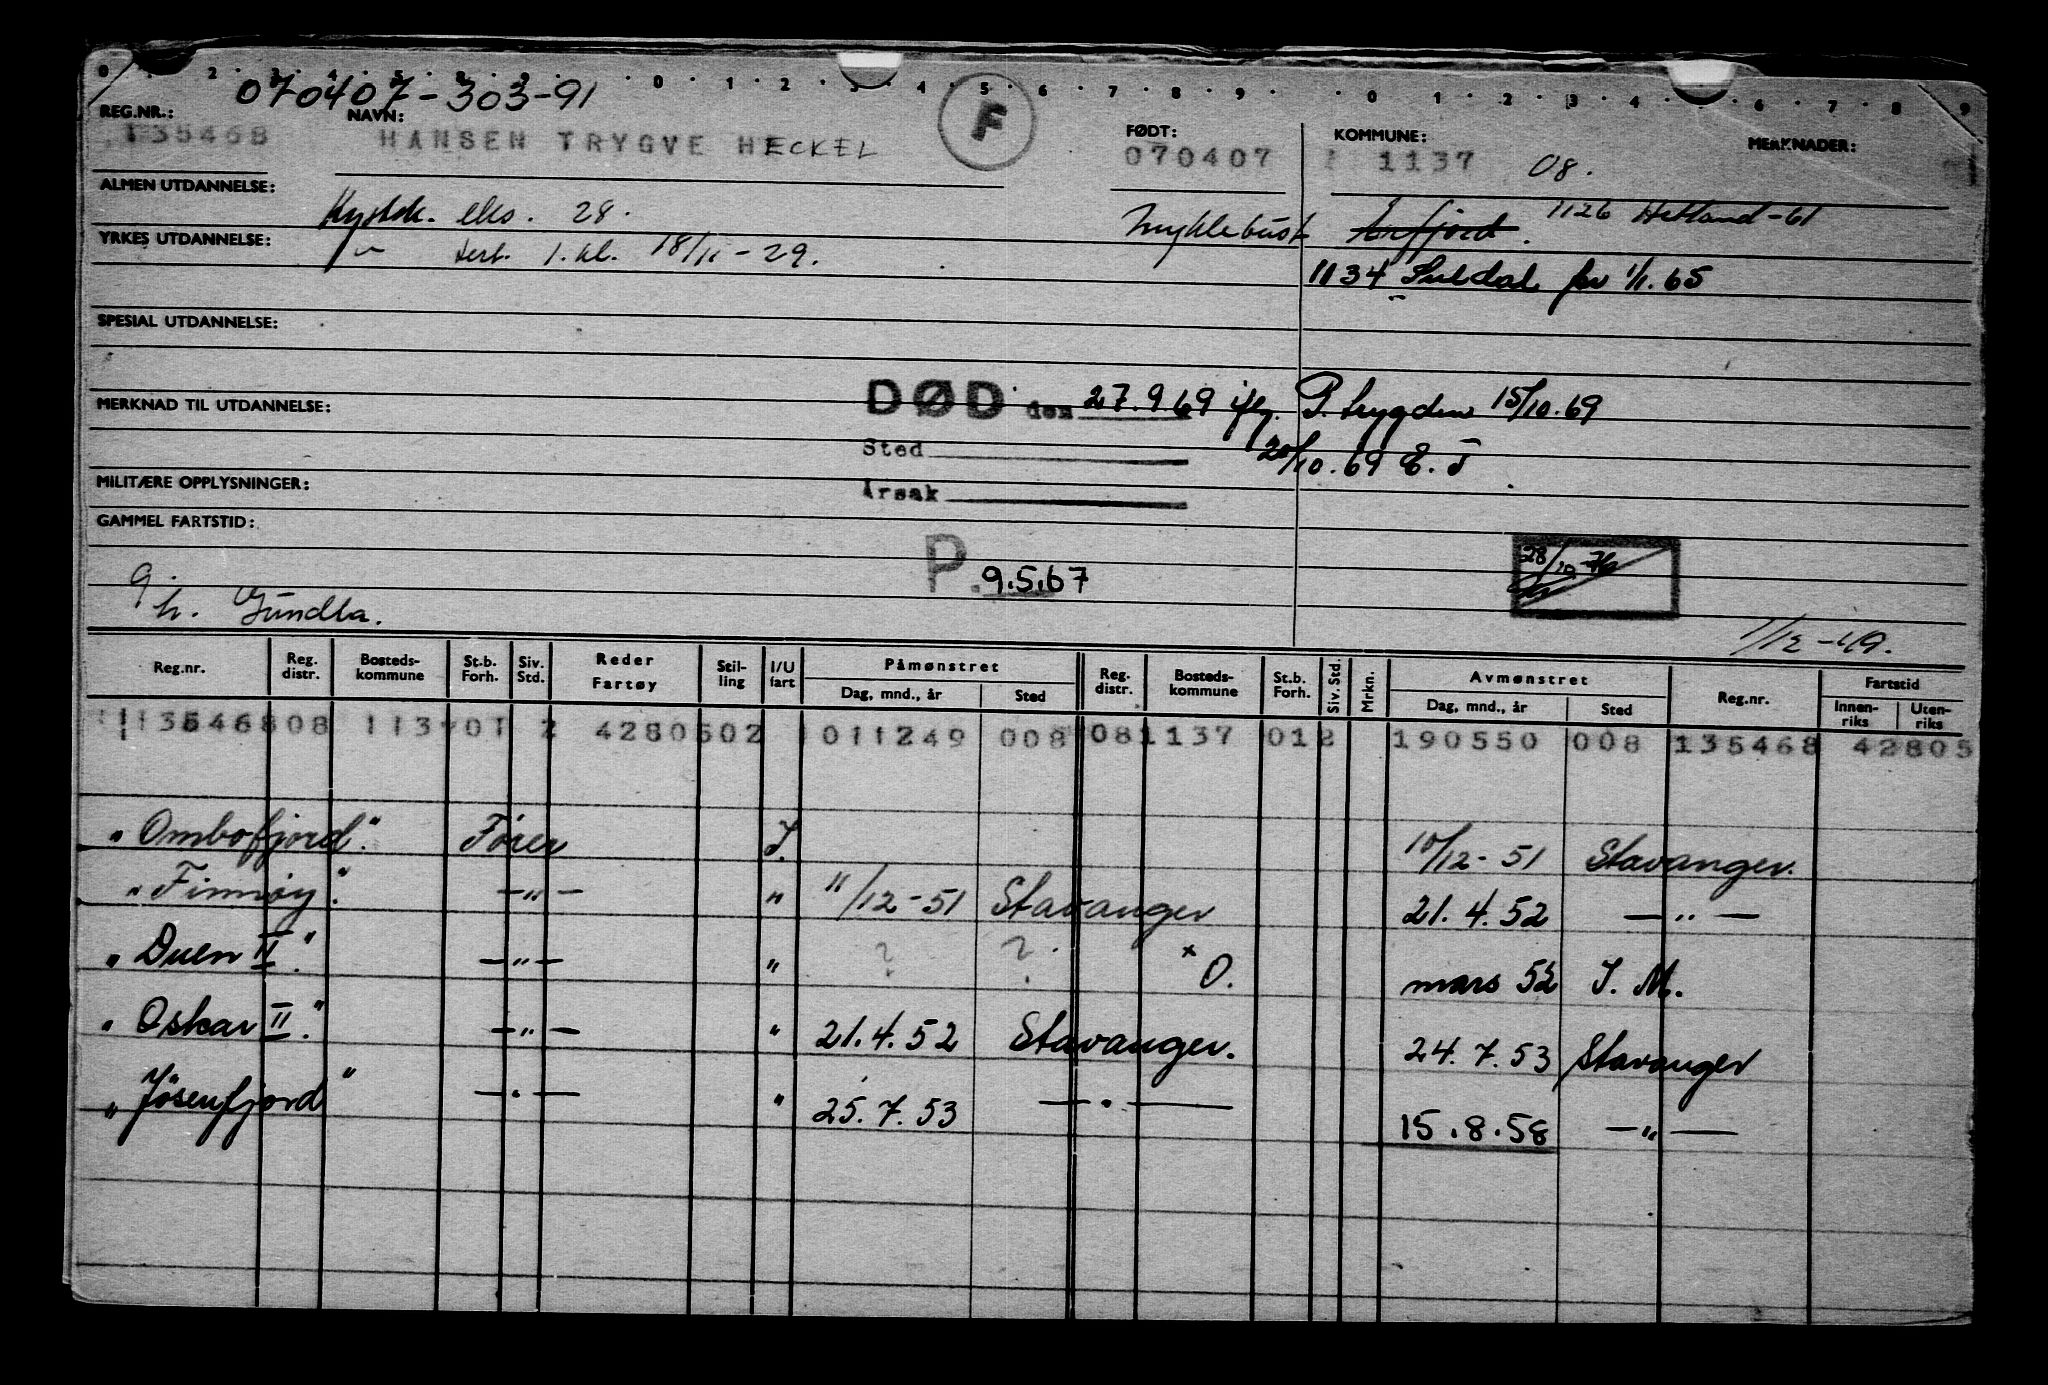 0 . 1 . 2 . 3 . 4 . 5 . 6 . 7 . 8 . 9 . . 0 . 1 . 2 . 3 . 4 . 5 . 6 . 7 . 8 . 9
070407-303-91
REG.NR.: NAVN: F FØDT: KOMMUNE: MERKNADER:
135468 HANSEN TRYGVE HECKEL 070407 1137 08.
ALMEN UTDANNELSE: Kystsk. eks. 28. 1126 Hetland-61
YRKES UTDANNELSE: -"- sert. 1. kl. 18/11-29.
1134 Suldal fra 1/1.65
SPESIAL UTDANNELSE:
DØD den 27.9.69 iflg. P. trygden 15/10.69
MERKNAD TIL UTDANNELSE:
Sted 20/10.69 E.T
MILITÆRE OPPLYSNINGER: Årsak
GAMMEL FARTSTID:
P. 9.5.67
1/12-49.
Reg.nr. Reg. distr. Bosteds-kommune St.b. Forh. Siv. Std. Reder Fartøy Stil-ling I/U fart Påmønstret Dag, mnd., år Sted Reg. distr. Bosteds-kommune St.b. Forh. Siv. Std. Mrkn. Avmønstret Dag, mnd., år Sted Reg.nr. Fartstid Innen-riks Uten-riks
011249 008 08 1137 01 2 190550 008 135468 42805
"Ombofjord". Fører I. 10/12-51 Stavanger.
"Finnøy". -"- " 11/12-51 Stavanger 21.4.52 -"-
"Duen II". -"- " ? ? x O. mars 52 I. M.
"Oskar II". -"- " 21.4.52 Stavanger. 24.7.53 Stavanger
"Jøsenfjord" -"- " 25.7.53 -"- 15.8.58 -"-